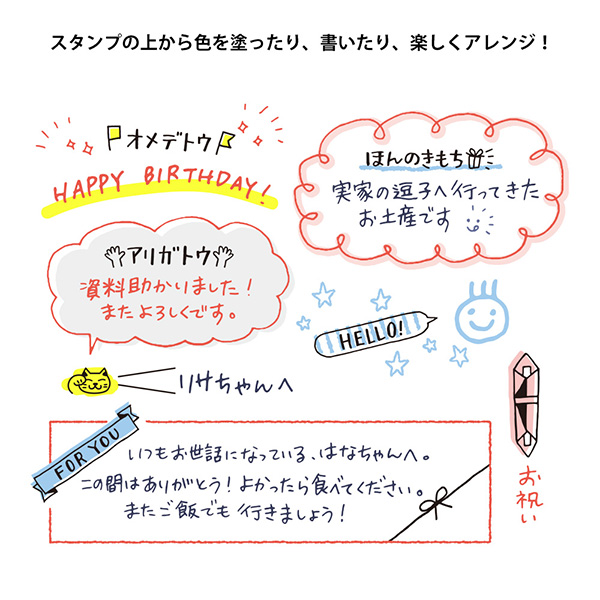 スタンプの上から色を塗ったり、書いたり、楽しくアレンジ！
オメデトウ
HAPPY BIRTHDAY!
ほんのきもち
実家の逗子へ行ってきた
お土産です
アリガトウ
資料助かりました！
またよろしくです。
HELLO!
りサちゃんへ
FOR YOU
いつもお世話になっている、はなちゃんへ。
この間はありがとう！よかったら食べてください。
またご飯でも行きましょう！
お祝い